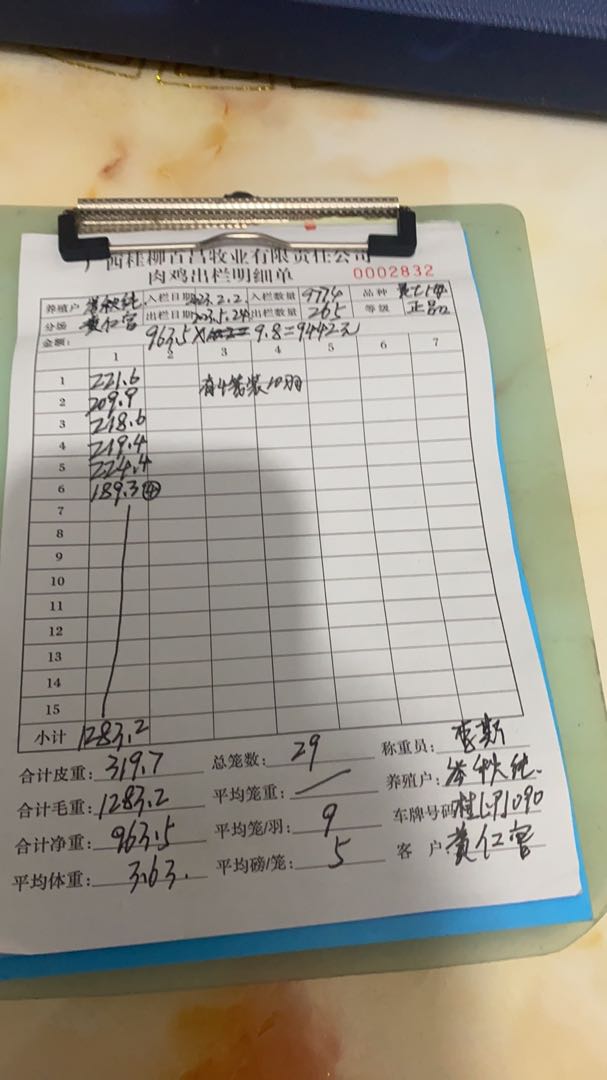 广西桂柳百昌牧业有限责任公司
肉鸡出栏明细单 0002832
养殖户 入栏日期 2023.2.2. 入栏数量 9774 品种
分场 黄仁官 出栏日期 2023.5.24 出栏数量 265 等级 正品
金额: 963.5 × 9.8=9442元
1 2 3 4 5 6 7
1 221.6 有4笼装10羽
2 209.9
3 218.6
4 219.4
5 224.4
6 189.3 ④
7
8
9
10
11
12
13
14
15
小计 1283.2
合计皮重: 319.7 总笼数: 29 称重员: 李斯
合计毛重: 1283.2 平均笼重: 养殖户:
合计净重: 963.5 平均笼/羽: 9 车牌号码: 090
平均体重: 3.63. 平均磅/笼: 5 客户: 黄仁官